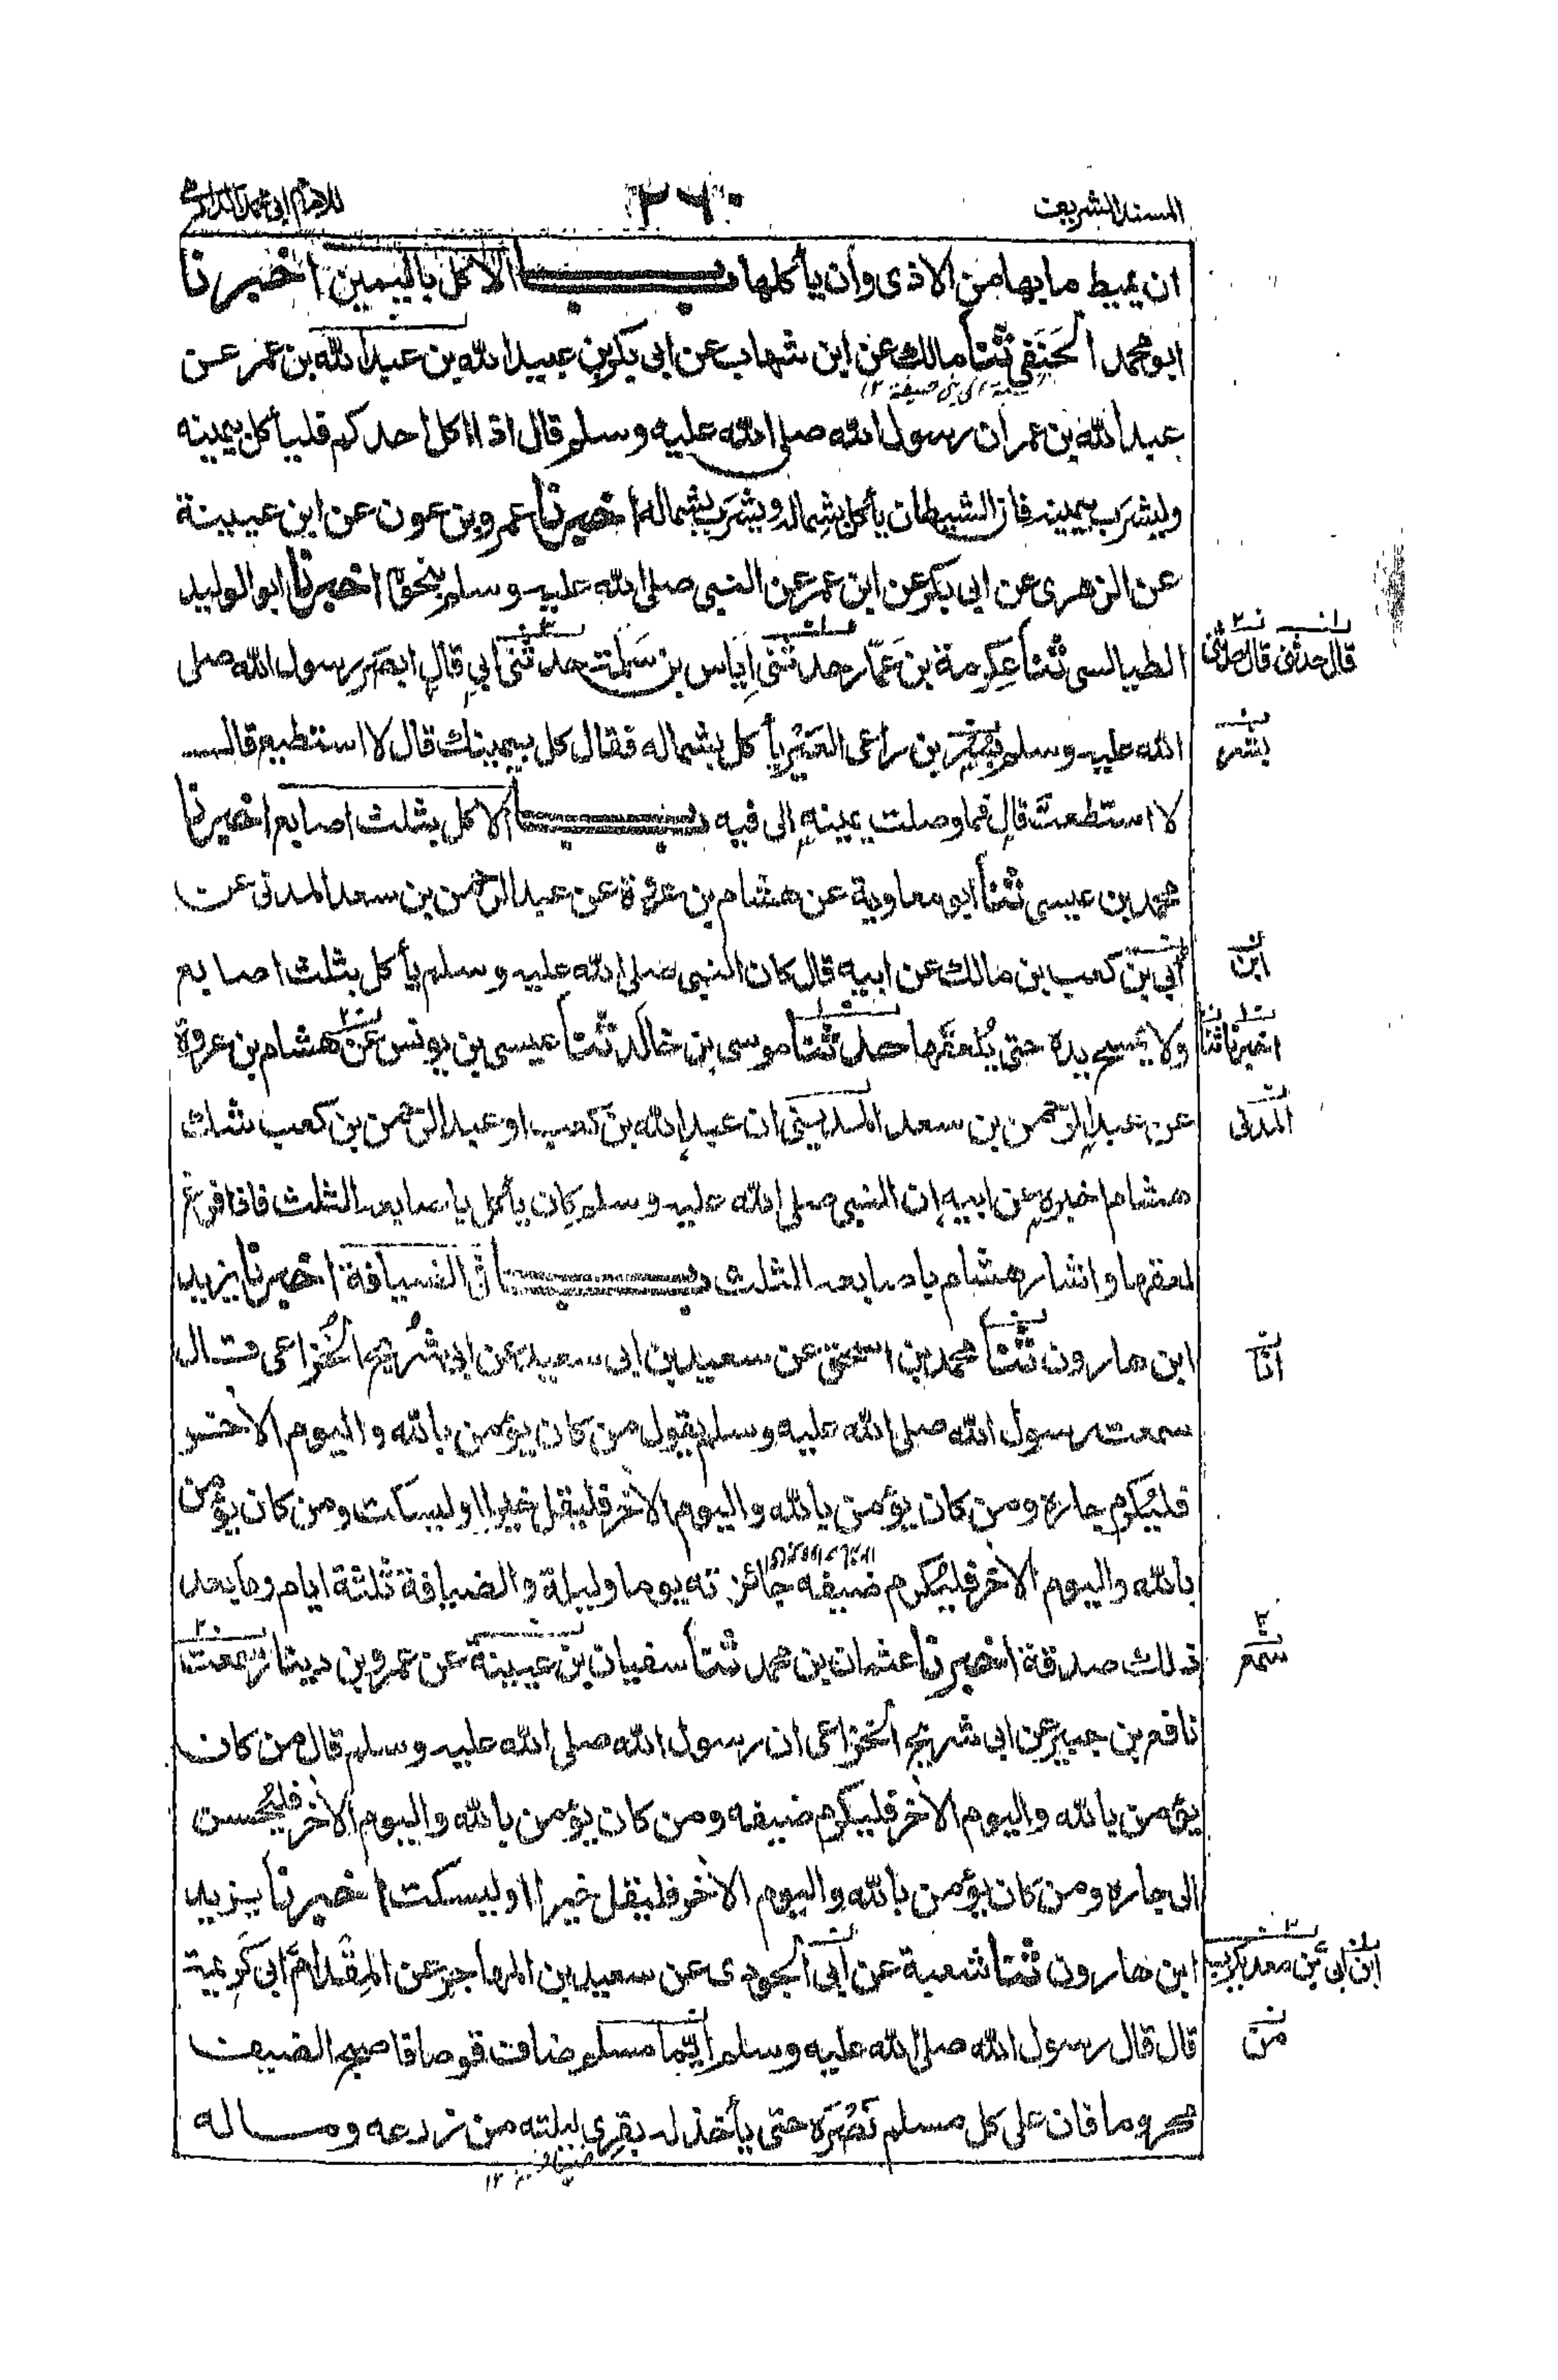 المسند الشريف
٢٦٠
للامام ابى محمد الدارمى
ان يميط ما بها من الاذى وان يأكلها باب الاكل باليمين اخبرنا
ابو محمد الحَنَفِى ثنا مالك عن ابن شهاب عن ابى بكر بن عبيد الله بن عبد الله بن عمر عن
عبد الله بن عمر ان رسول الله صلى الله عليه وسلم قال اذا اكل احدكم فليأكل بيمينه
وليشرب بيمينه فان الشيطان يأكل بشماله ويشرب بشماله اخبرنا عمرو بن عون عن ابن عيينة
عن الزهرى عن ابى بكر عن ابن عمر عن النبى صلى الله عليه وسلم بنحوه اخبرنا ابو الوليد
الطيالسى ثنا عِكرِمة بن عَمّار حدثنى اِياس بن سَلَمة حدثنى ابى قال ابصَر رسول الله صلى
قال حدثنى قال حدثنى
الله عليه وسلم بُسْر بن راعى العَيْر يأكل بشماله فقال كل بيمينك قال لا استطيع قال
بشر
لا استطعتَ قال فما وصلت يمينه الى فيه باب الاكل بثلث اصابع اخبرنا
محمد بن عيسى ثنا ابو معاوية عن هشام بن عروة عن عبد الرحمن بن سعد المدنى عن
أبى بن كعب بن مالك عن ابيه قال كان النبى صلى الله عليه وسلم يأكل بثلث اصابع
ابن
ولا يمسح يده حتى يَلعَقَها حدثنا موسى بن خالد ثنا عيسى بن يونس عن هشام بن عروة
اخبرنا ثنا
عن عبد الرحمن بن سعد المدينى ان عبد الله بن كعب او عبد الرحمن بن كعب شك
المدنى
هشام اخبره عن ابيه ان النبى صلى الله عليه وسلم كان يأكل باصابعه الثلث فاذا فرغ
لعقها واشار هشام باصابعه الثلث باب فى الضيافة اخبرنا يزيد
ابن هارون ثنا محمد بن اسحق عن سعيد بن ابى سعيد عن ابى شُرَيح الخُزاعى قال
انا
سمعت رسول الله صلى الله عليه وسلم يقول من كان يؤمن بالله واليوم الاخر
فليُكرم جاره ومن كان يؤمن بالله واليوم الاخر فليقل خيرا او ليسكت ومن كان يؤمن
بالله واليوم الاخر فليُكرم ضيفه جائزته يوما وليلة والضيافة ثلثة ايام وما بعد
ذلك صدقة اخبرنا عثمان بن محمد ثنا سفيان بن عيينة عن عمرو بن دينار سمعت
سمع
نافع بن جبير عن ابى شريح الخزاعى ان رسول الله صلى الله عليه وسلم قال من كان
يؤمن بالله واليوم الاخر فليكرم ضيفه ومن كان يؤمن بالله واليوم الاخر فليُحسن
الى جاره ومن كان يؤمن بالله واليوم الاخر فليقل خيرا او ليسكت اخبرنا يزيد
ابن هارون ثنا شعبة عن ابى الجودى عن سعيد بن المهاجر عن المِقدام ابى كَرِيمة
ابن ابى بن معديكرب
قال قال رسول الله صلى الله عليه وسلم ايّما مسلم ضاف قوما فاصبح الضيف
من
محروما فان على كل مسلم نَصْرَه حتى يأخذ له بقِرى ليلته من زرعه وماله
ضيافة ١٢